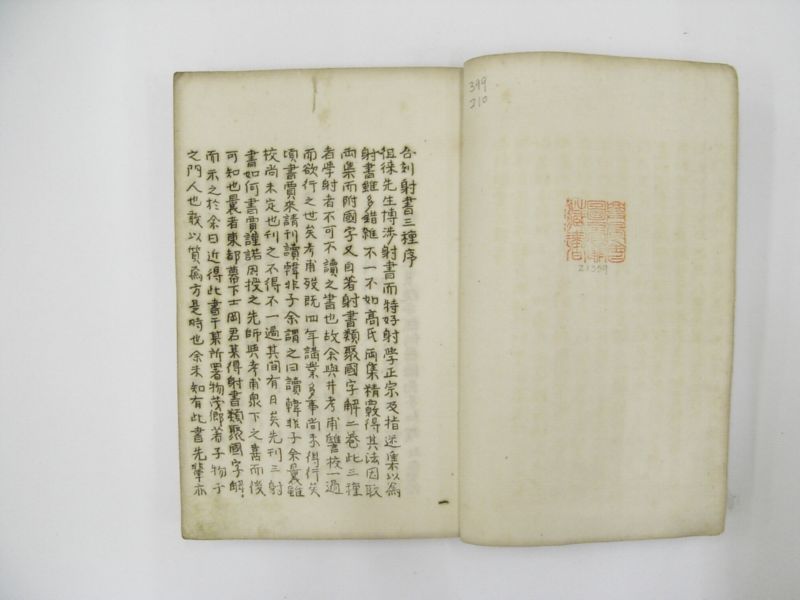 合刻射書三種序
徂徠先生博涉射書而特好射學正宗及指迷集以爲
射書雖多錯雜不一不如高氏兩集精覈得其法因取
兩集而附國字又自著射書類聚國字解二卷此三種
者學射者不可不讀之書也故余與井考甫讐校一過
而欲行之世矣考甫歿既四年講業多事尚未得行矣
頃書賈來請刊讀韓非子余謂之曰讀韓非子余曩雖
校尚未定也刊之不得不一過其間有日矣先刊三射
書如何書賈謹諾因授之先師與考甫泉下之喜而後
可知也曩者東都幕下士岡君某得射書類聚國字解
而示之於余曰近得此書于某所署物茂卿著子物子
之門人也敢以質焉方是時也余未知有此書先輩亦
399
210
21359